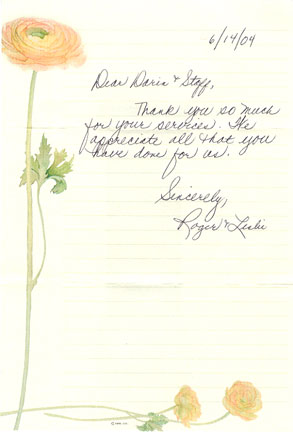 6/14/04
Dear Darin & Staff,
Thank you so much
for your services. We
appreciate all that you
have done for us.
Sincerely,
Roger & Leslie